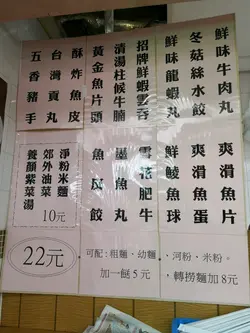 鮮味牛肉丸
冬菇絲水餃
鮮味龍蝦丸
招牌鮮蝦雲吞
清湯柱候牛腩
黃金魚片頭
酥炸魚皮
台灣貢丸
五香豬手
爽滑魚片
爽滑魚蛋
鮮鯪魚球
雪花肥牛
墨魚丸
魚皮餃
淨粉米麵
郊外油菜
養顏紫菜湯
10元
22元
可配:粗麵·幼麵·河粉·米粉。
加一餸5元 轉撈麵加8元